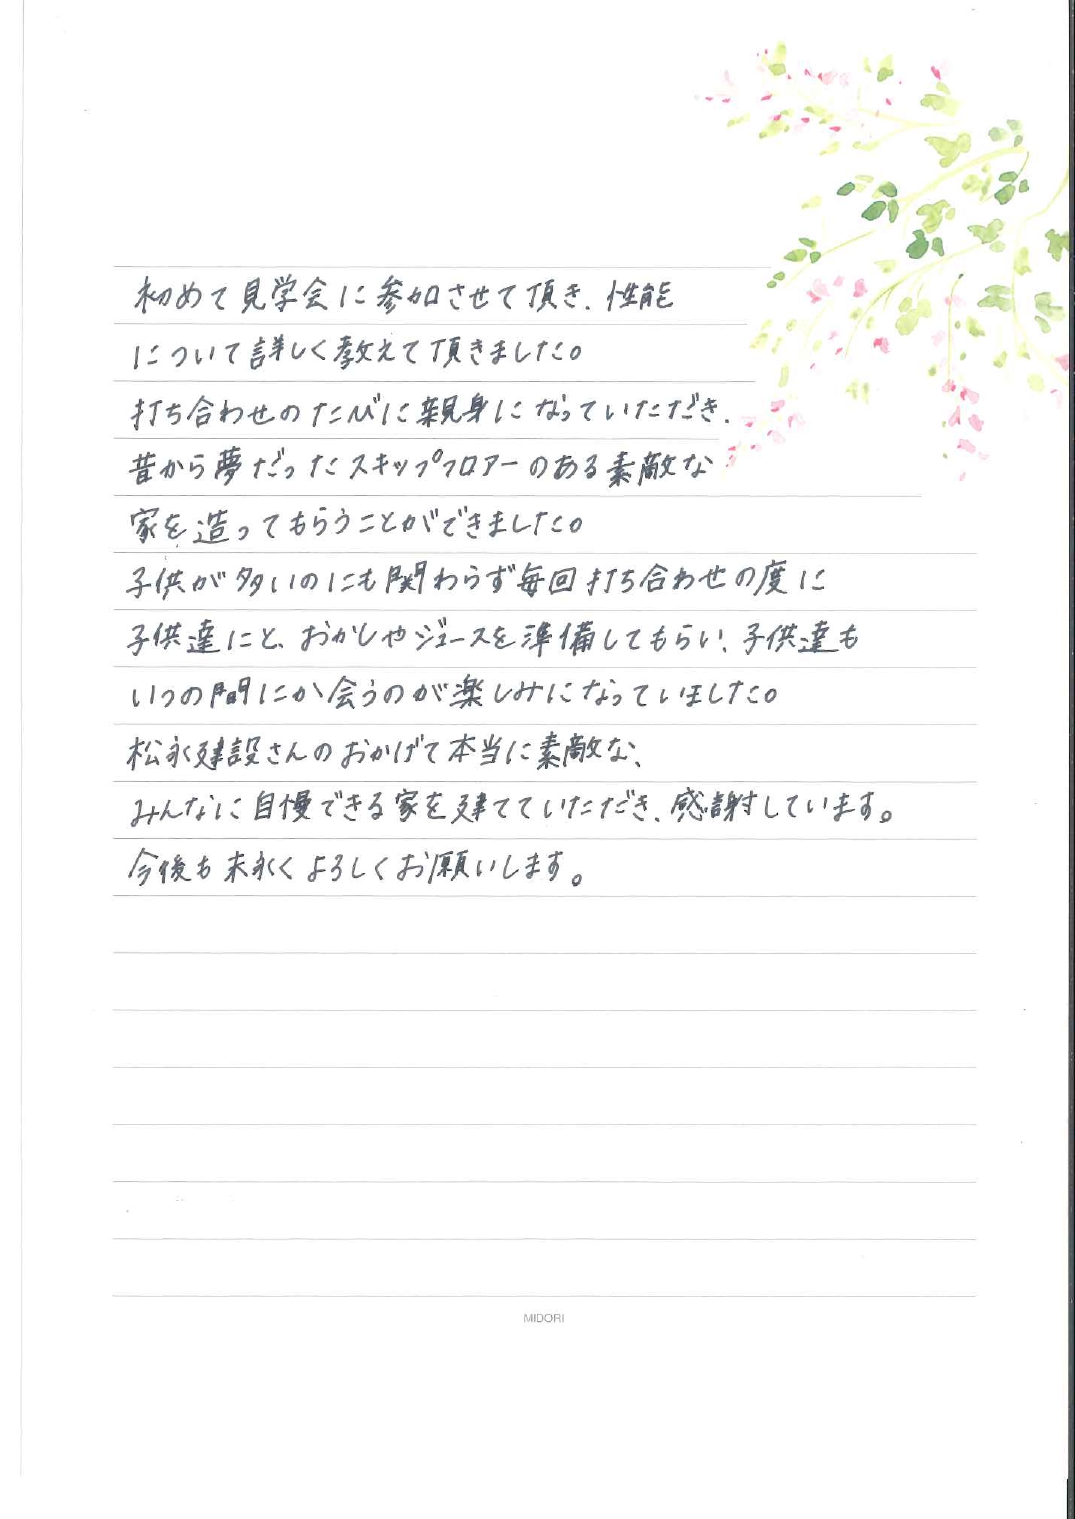 初めて見学会に参加させて頂き、性能
について詳しく教えて頂きました。
打ち合わせのたびに親身になっていただき、
昔から夢だったスキップフロアーのある素敵な
家を造ってもらうことができました。
子供が多いのにも関わらず毎回打ち合わせの度に
子供達にと、おかしやジュースを準備してもらい、子供達も
いつの間にか会うのが楽しみになっていました。
松永建設さんのおかげで本当に素敵な、
みんなに自慢できる家を建てていただき、感謝しています。
今後も末永くよろしくお願いします。
MIDORI